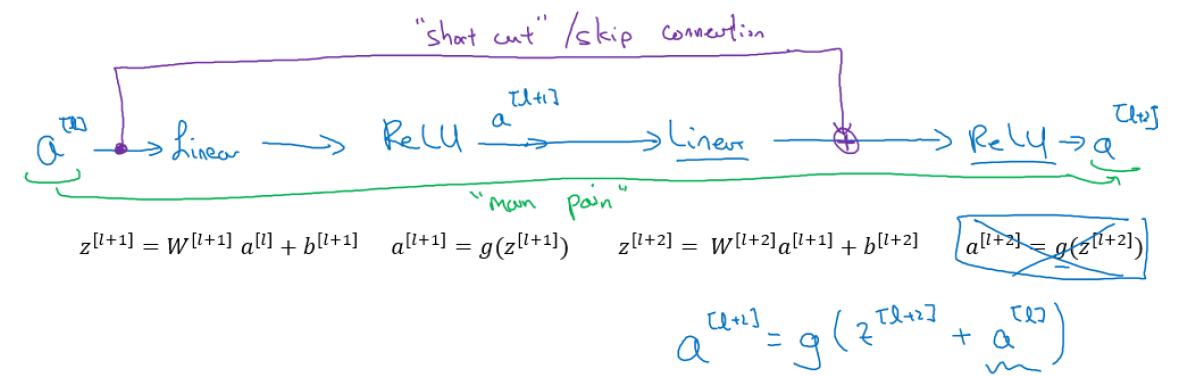 "short cut" / skip connection
a^[l] → Linear → ReLU a^[l+1] → Linear → ⊕ → ReLU → a^[l+2]
"main pain"
z^[l+1] = W^[l+1] a^[l] + b^[l+1] a^[l+1] = g(z^[l+1]) z^[l+2] = W^[l+2] a^[l+1] + b^[l+2] a^[l+2] = g(z^[l+2])
a^[l+2] = g(z^[l+2] + a^[l])